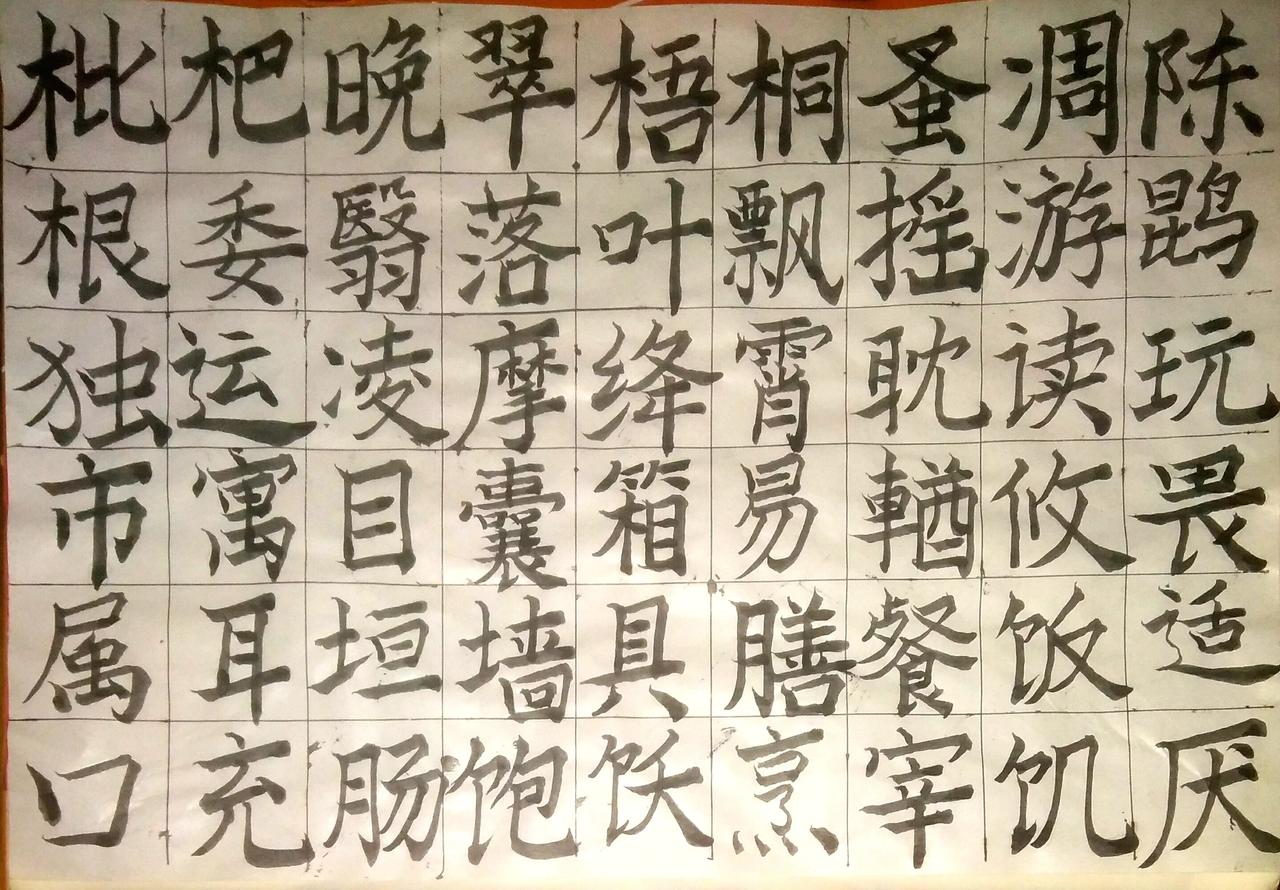 枇杷晚翠梧桐蚤凋陈
根委翳落叶飘摇游鹍
独运凌摩绛霄耽读玩
市寓目囊箱易輶攸畏
属耳垣墙具膳餐饭适
口充肠饱饫烹宰饥厌